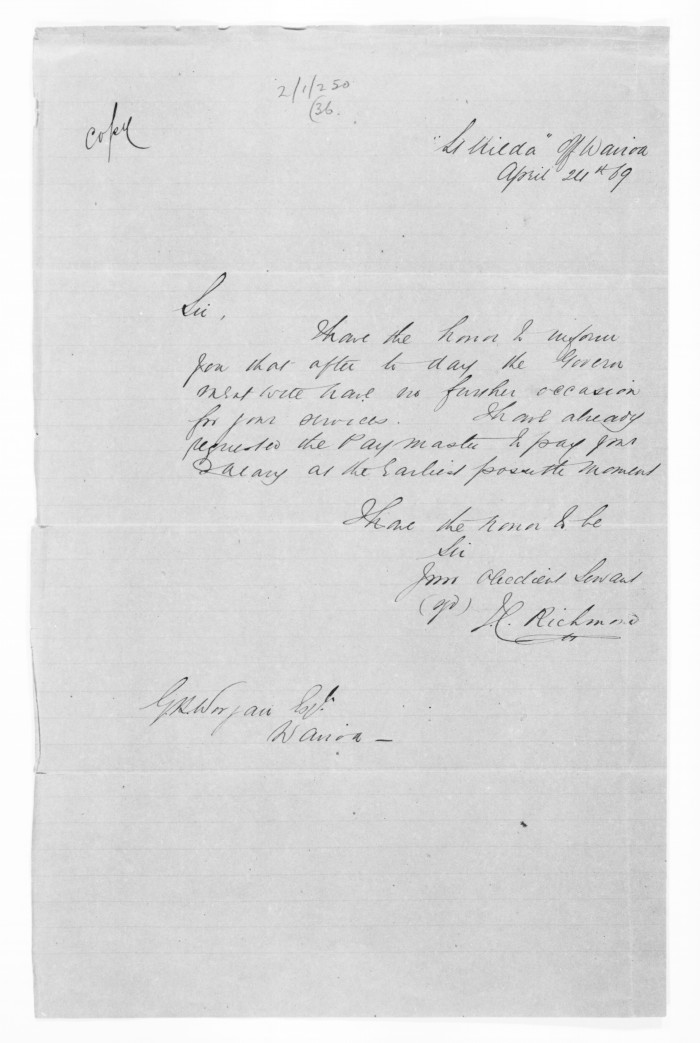 2/1/250
(36.
copy
"St Kilda" off Wairoa
April 24th 69
Sir,
I have the honor to inform
you that after to day the Govern
ment will have no further occasion
for your services. I have already
requested the Paymaster to pay your
Salary at the Earliest possible moment
I have the honor to be
Sir
Your obedient Servant
(sgd) J.C. Richmond
G B Worgan Esqr
Wairoa —